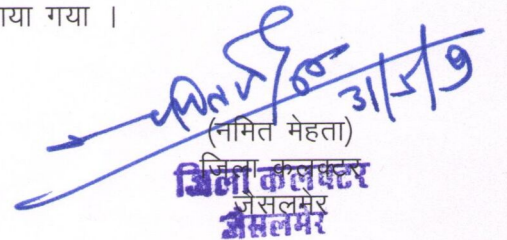 ाया गया ।
31/5/9
(नमित मेहता)
जिला कलक्टर
जिला कलक्टर
जैसलमेर
जैसलमेर